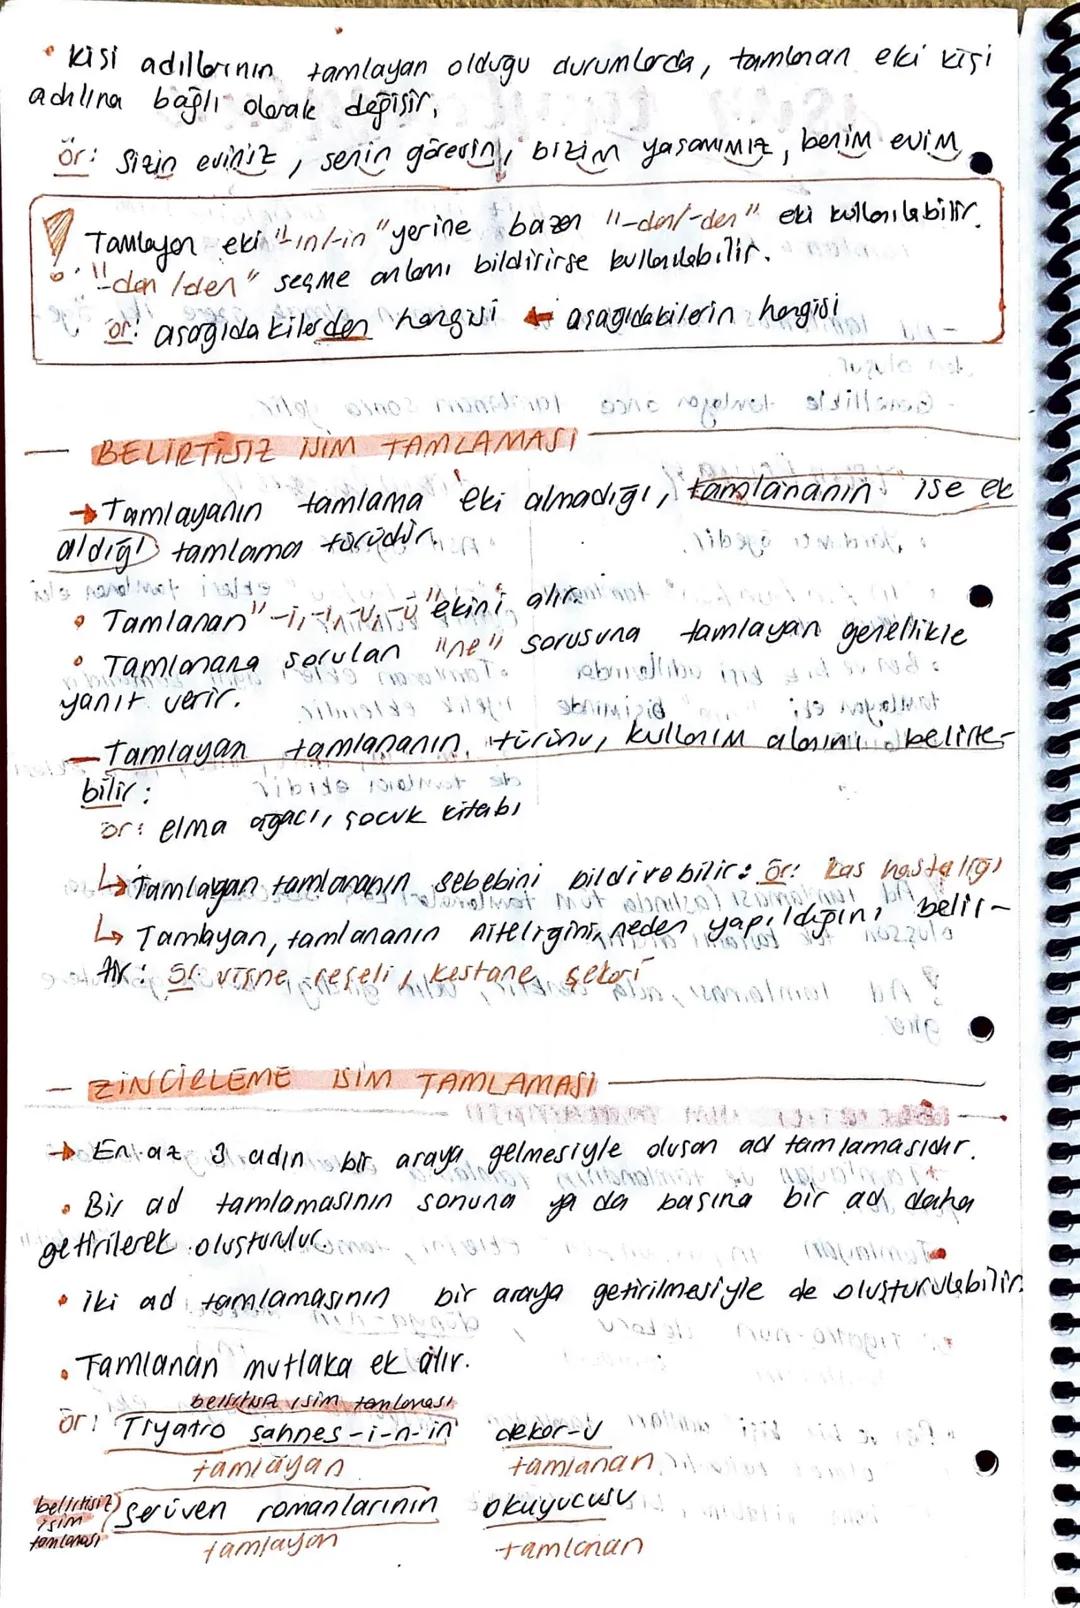 • Kişi adıllarının tamlayan olduğu durumlarda, tamlanan eki kişi
adılına bağlı olarak değişir.
ör: Sizin eviniz, senin görevin, bizim yaşamımız, benim evim
! Tamlayan eki "-ın/-in" yerine bazen "-dan/-den" eki kullanılabilir.
• "-dan/den" seçme anlamı bildirirse kullanılabilir.
ör: aşağıdakilerden hangisi ← aşağıdakilerin hangisi
— BELİRTİSİZ İSİM TAMLAMASI
→ Tamlayanın tamlama eki almadığı, tamlananın ise ek
aldığı tamlama türüdür.
• Tamlanan "-i, -ı, -u, -ü" ekini alır.
• Tamlanana sorulan "ne" sorusuna tamlayan genellikle
yanıt verir.
— Tamlayan tamlananın türünü, kullanım alanını belirte-
bilir:
ör: elma ağacı, çocuk kitabı
↳ Tamlayan tamlananın sebebini bildirebilir: ör: kas hastalığı
↳ Tamlayan, tamlananın niteliğini, neden yapıldığını belir-
tir: ör: vişne reçeli, kestane şekeri
— ZİNCİRLEME İSİM TAMLAMASI
→ En az 3 adın bir araya gelmesiyle oluşan ad tamlamasıdır.
• Bir ad tamlamasının sonuna ya da başına bir ad daha
getirilerek oluşturulur.
• iki ad tamlamasının bir araya getirilmesiyle de oluşturulabilir.
• Tamlanan mutlaka ek alır.
belirtisiz isim tamlaması
ör: Tiyatro sahnes-i-n-in dekor-u
tamlayan tamlanan
belirtisiz isim tamlaması) Serüven romanlarının okuyucusu
tamlayan tamlanan